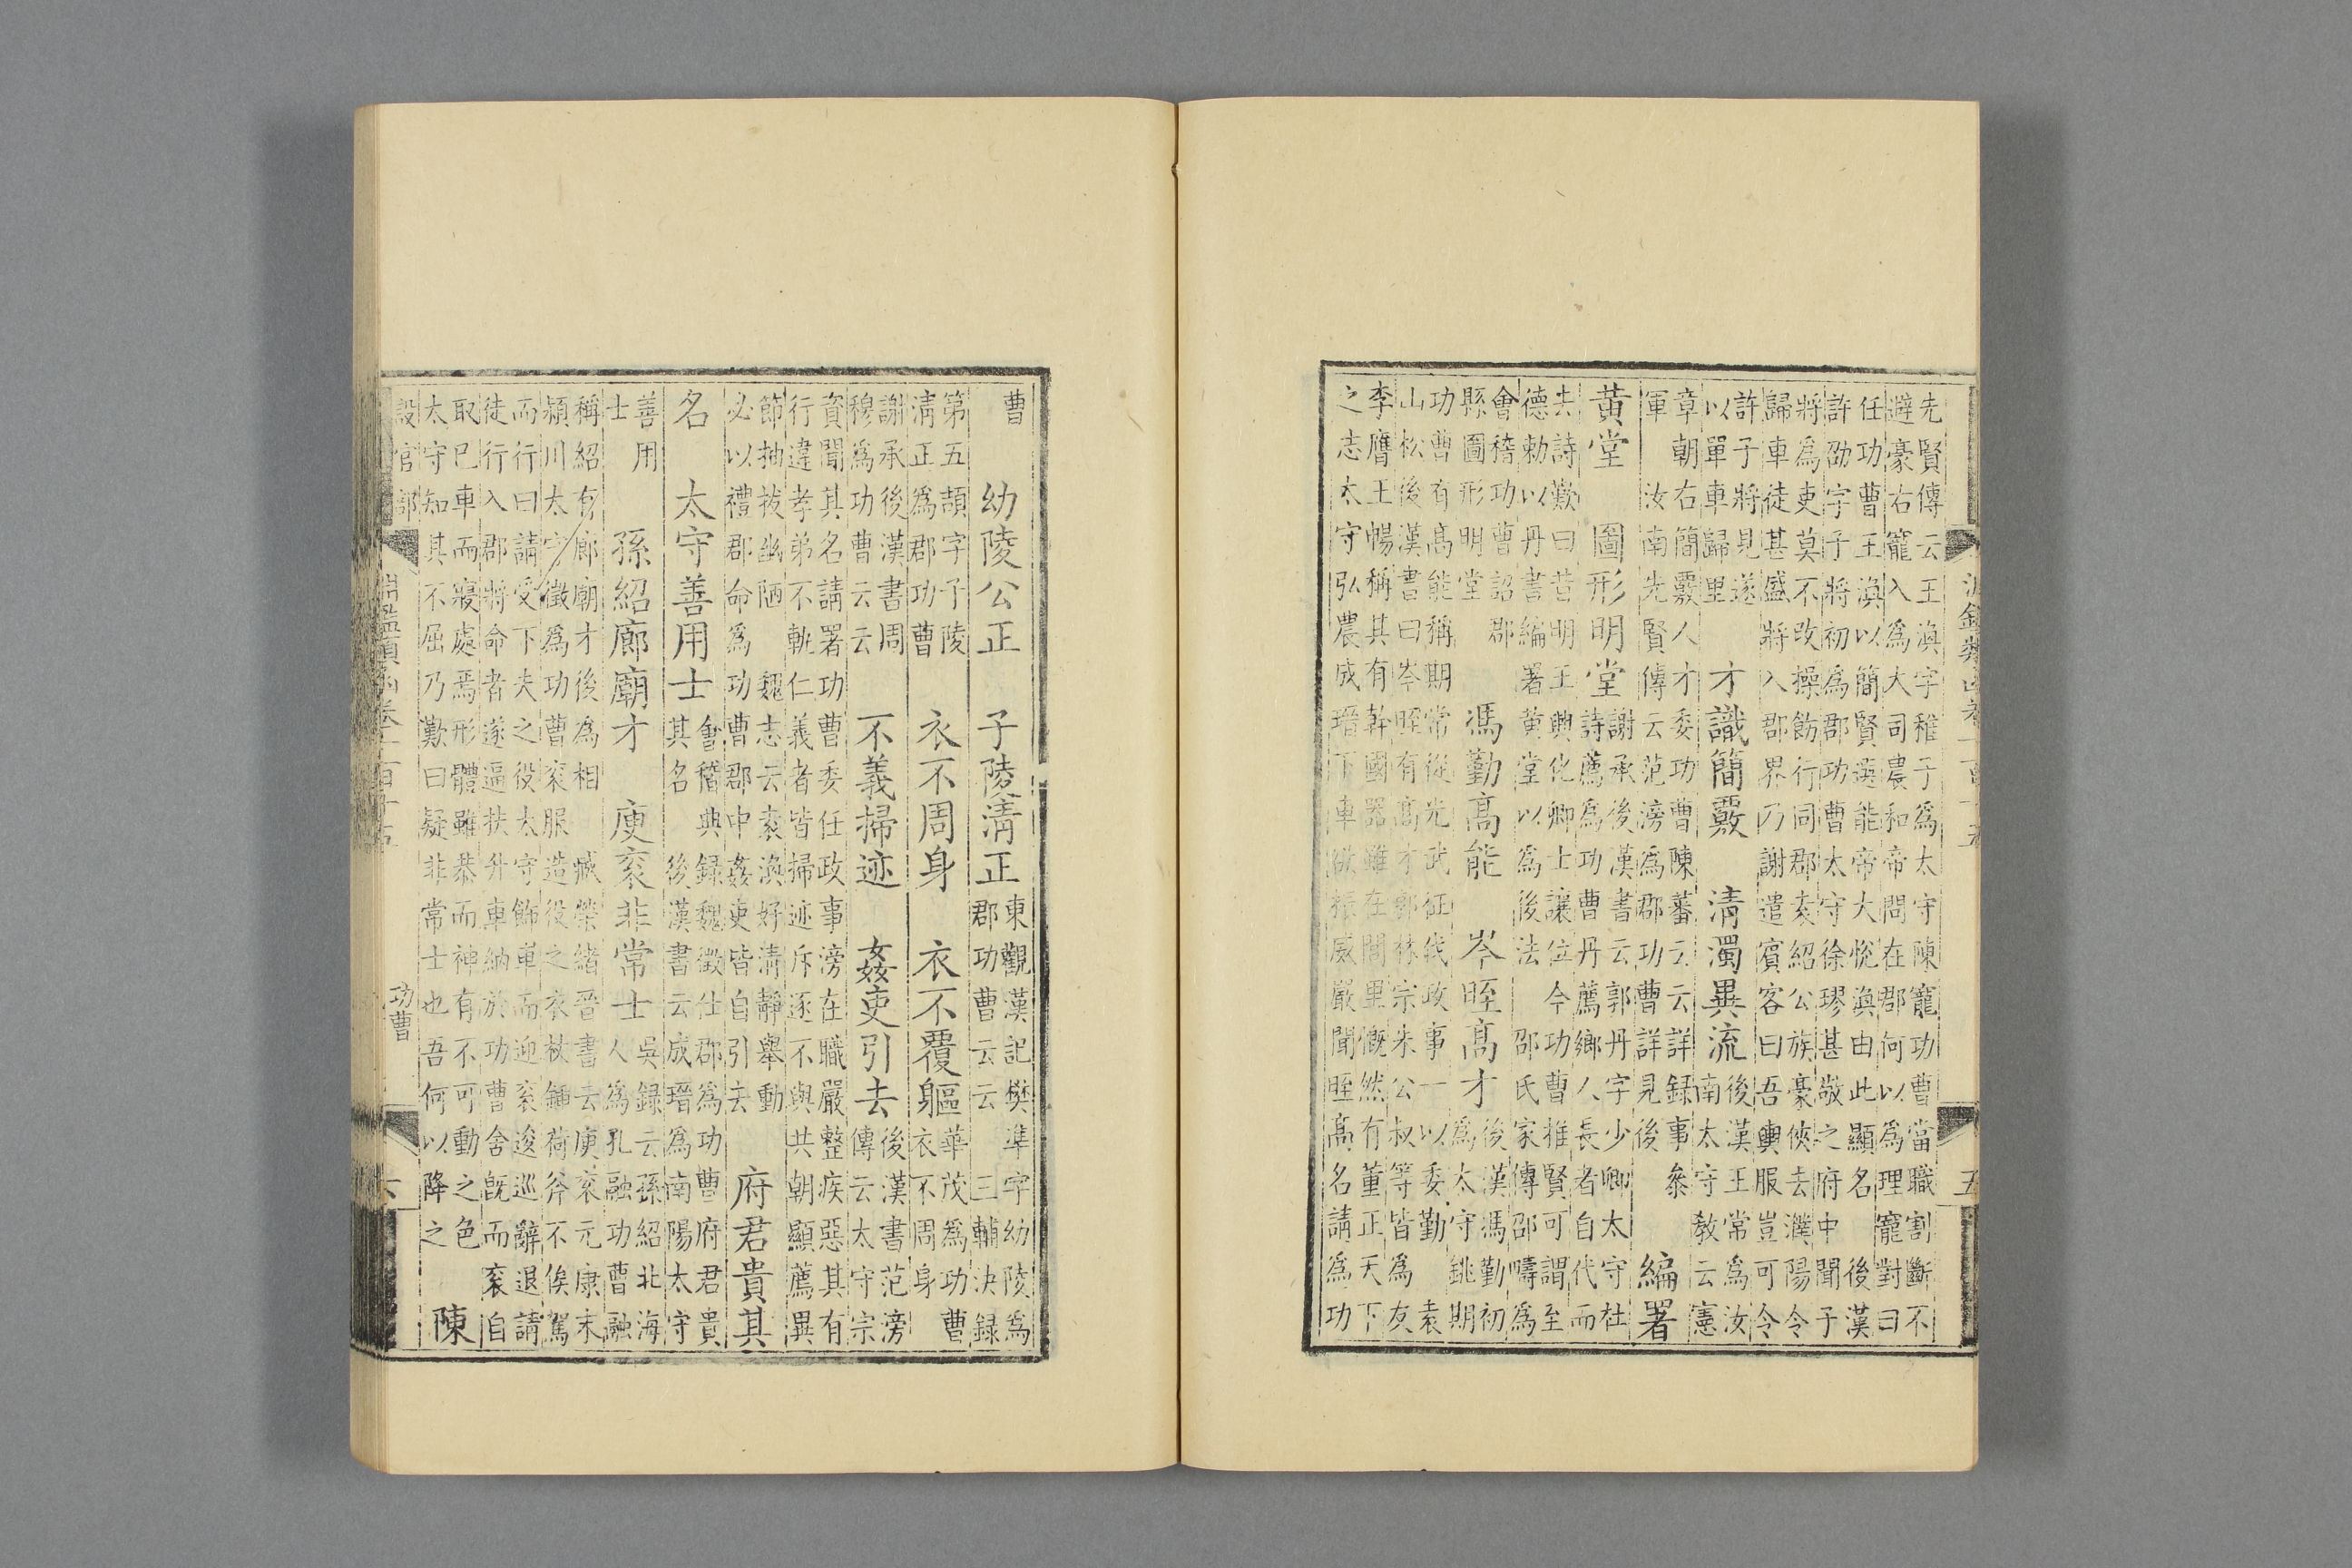 淵鑑類函卷一百十五
五
先賢傳云王渙字稚子爲太守陳寵功曹當職割斷不
避豪右寵入爲大司農和帝問在郡何以爲理寵對曰
任功曹王渙以簡賢選能帝大悅渙由此顯名 後漢
許劭字子將初爲郡功曹太守徐璆甚敬之府中聞子
將爲吏莫不改操飭行同郡袁紹公族豪俠去濮陽令
歸車徒甚盛將入郡界乃謝遣賓客曰吾輿服豈可令
許子將見遂
以單車歸里
才識簡覈 淸濁異流
後漢王常爲汝
南太守敎云憲
章朝右簡覈人才委功曹陳蕃云云詳録事叅
軍 汝南先賢傳云范滂爲郡功曹詳見後
編署
黃堂 圖形明堂
謝承後漢書云郭丹字少卿太守杜
詩薦爲功曹丹薦鄉人長者自代而
去詩歎曰昔明王興化卿士讓位今功曹推賢可謂至
德勅以丹書編署黃堂以爲後法 邵氏家傳邵疇爲
會稽功曹詔郡
縣圖形明堂
馮勤高能 岑晊高才
後漢馮勤初
爲太守銚期
功曹有高能稱期常從光武征伐政事一以委勤 袁
山松後漢書曰岑晊有高才郭林宗朱公叔等皆爲友
李膺王暢稱其有幹國器雖在閭里慨然有董正天下
之志太守弘農成瑨下車欲振威嚴聞晊高名請爲功
曹
幼陵公正 子陵淸正
東觀漢記樊準字幼陵爲
郡功曹云云 三輔決録
第五頡字子陵
淸正爲郡功曹
衣不周身 衣不覆軀
華茂爲功曹
衣不周身
謝承後漢書周
穆爲功曹云云
不義掃迹 姦吏引去
後漢書范滂
傳云太守宗
資聞其名請署功曹委任政事滂在職嚴整疾惡其有
行違孝弟不軌仁義者皆掃迹斥逐不與共朝顯薦異
節抽拔幽陋 魏志云袁渙好淸靜舉動
必以禮郡命爲功曹郡中姦吏皆自引去
府君貴其
名 太守善用士
會稽典録魏徵仕郡爲功曹府君貴
其名 後漢書云成瑨爲南陽太守
善用
士
孫紹廊廟才 庾袞非常士
吳録云孫紹北海
人爲孔融功曹融
稱紹有廊廟才後爲相 臧榮緒晉書云庾袞元康末
潁川太守徵爲功曹袞服造役之衣杖鍤荷斧不俟駕
而行曰請受下夫之役太守飾車而迎袞逡巡辭退請
徒行入郡將命者遂逼扶升車納於功曹舍旣而袞自
取已車而寢處焉形體雖恭而神有不可動之色
太守知其不屈乃歎曰疑非常士也吾何以降之
陳
設官部
淵鑑類函卷一百十五
功曹
六